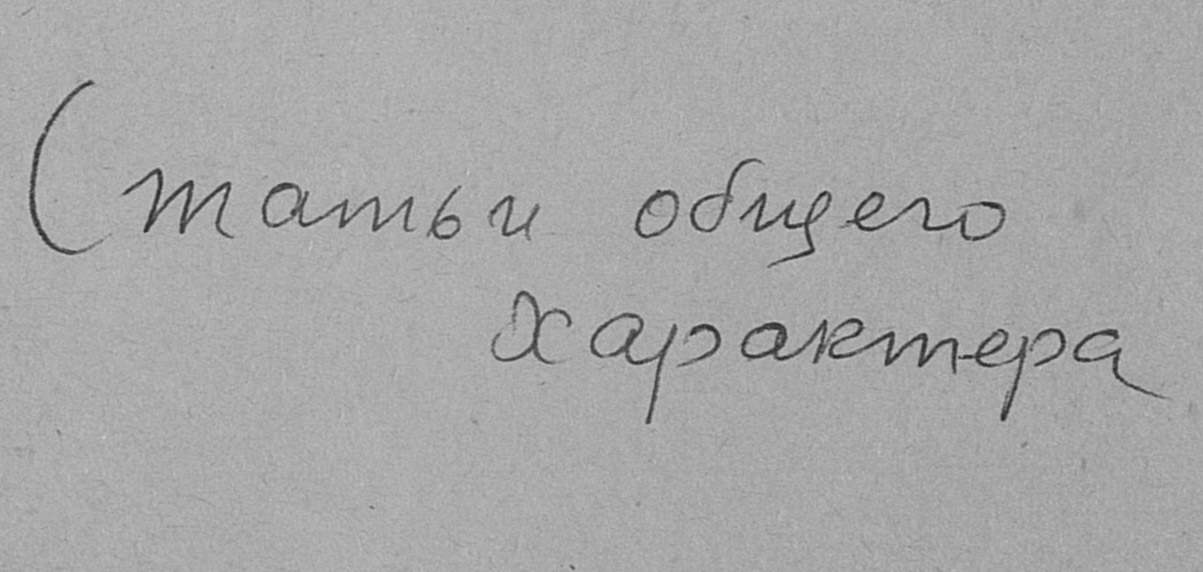 Статьи общего
характера